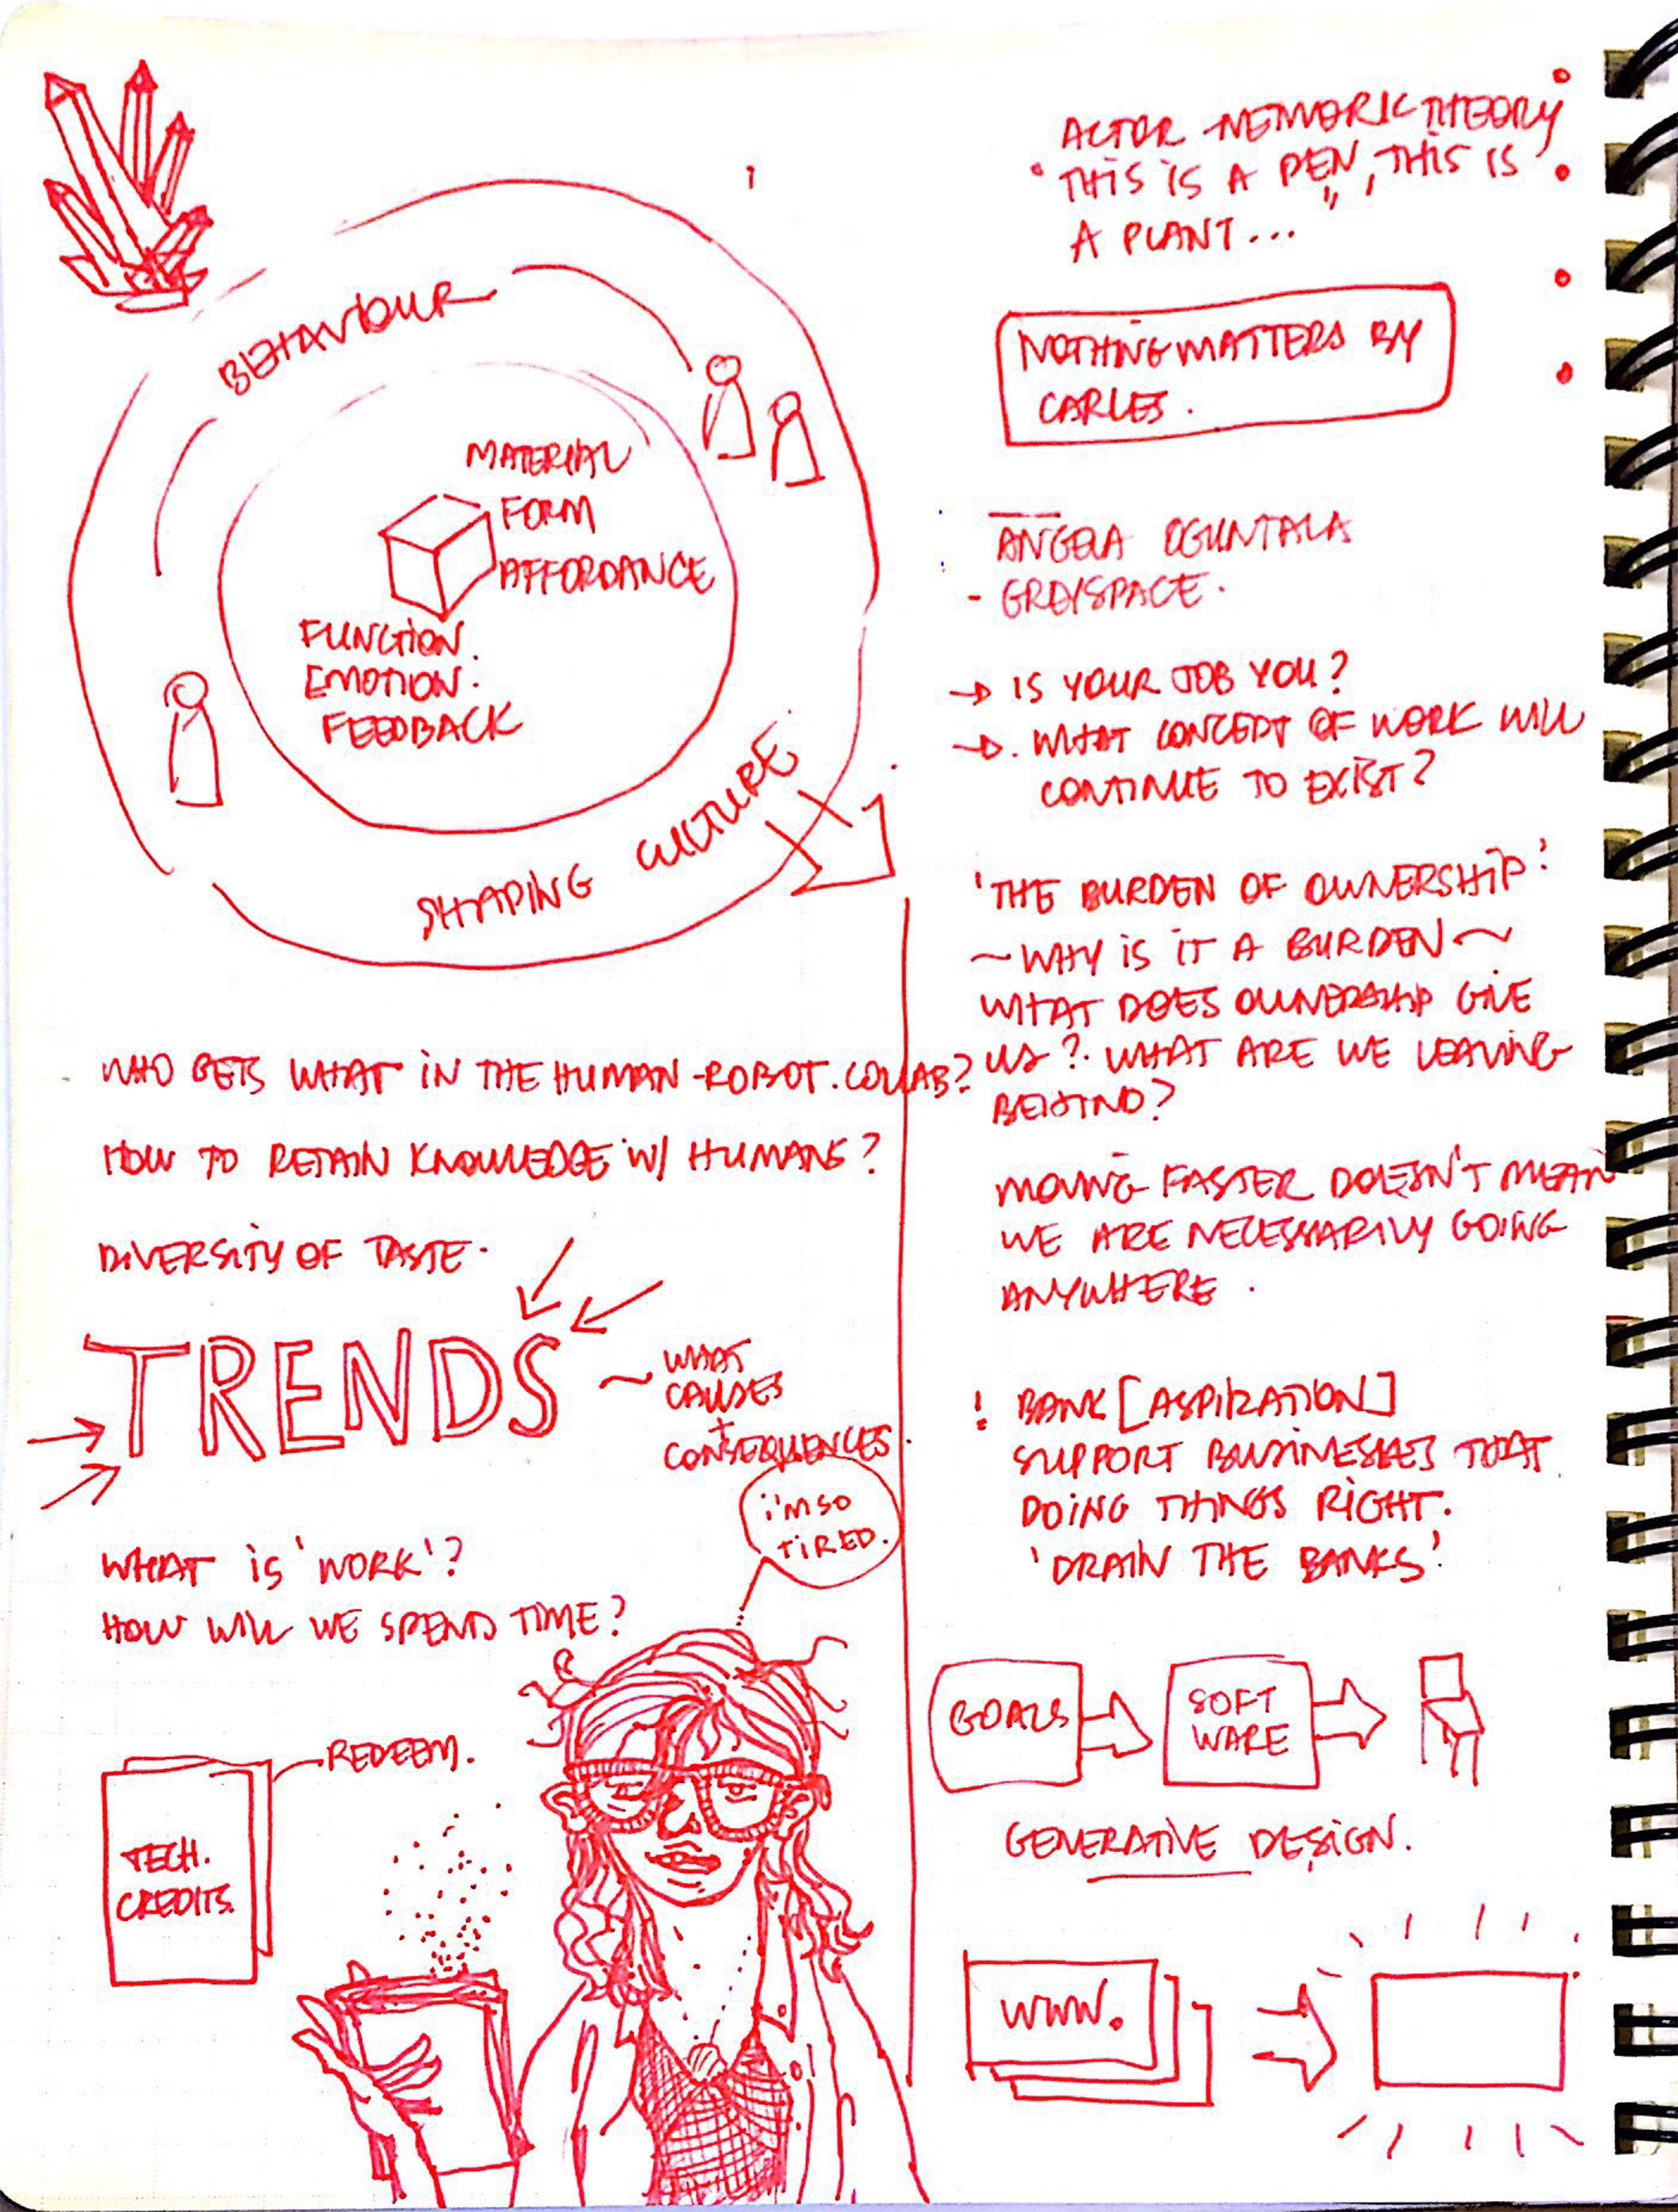 BEHAVIOUR
MATERIAL
FORM
AFFORDANCE
FUNCTION.
EMOTION.
FEEDBACK
SHAPING CULTURE.
WHO GETS WHAT IN THE HUMAN-ROBOT.COLLAB?
HOW TO RETAIN KNOWLEDGE W/ HUMANS?
DIVERSITY OF TASTE.
TRENDS
~ WHAT
CAUSES
+
CONSEQUENCES.
i'M SO
TiRED.
WHAT iS 'WORK'?
HOW WILL WE SPEND TIME?
REDEEM.
TECH.
CREDITS.
ACTOR-NETWORK THEORY
"THIS IS A PEN", THIS IS
A PLANT...
NOTHING MATTERS BY
CARLES.
ANGELA OGUNTALA
- GREYSPACE.
→ IS YOUR JOB YOU?
→. WHAT CONCEPT OF WORK WILL
CONTINUE TO EXIST?
'THE BURDEN OF OWNERSHIP'
~WHY IS IT A BURDEN~
WHAT DOES OWNERSHIP GIVE
US?. WHAT ARE WE LEAVING
BEHIND?
MOVING FASTER DOESN'T MEAN
WE ARE NECESSARILY GOING
ANYWHERE.
! BANK [ASPIRATION]
SUPPORT BUSINESSES THAT
DOING THINGS RIGHT.
'DRAIN THE BANKS'
GOALS
SOFT
WARE
GENERATIVE DESIGN.
WWW.